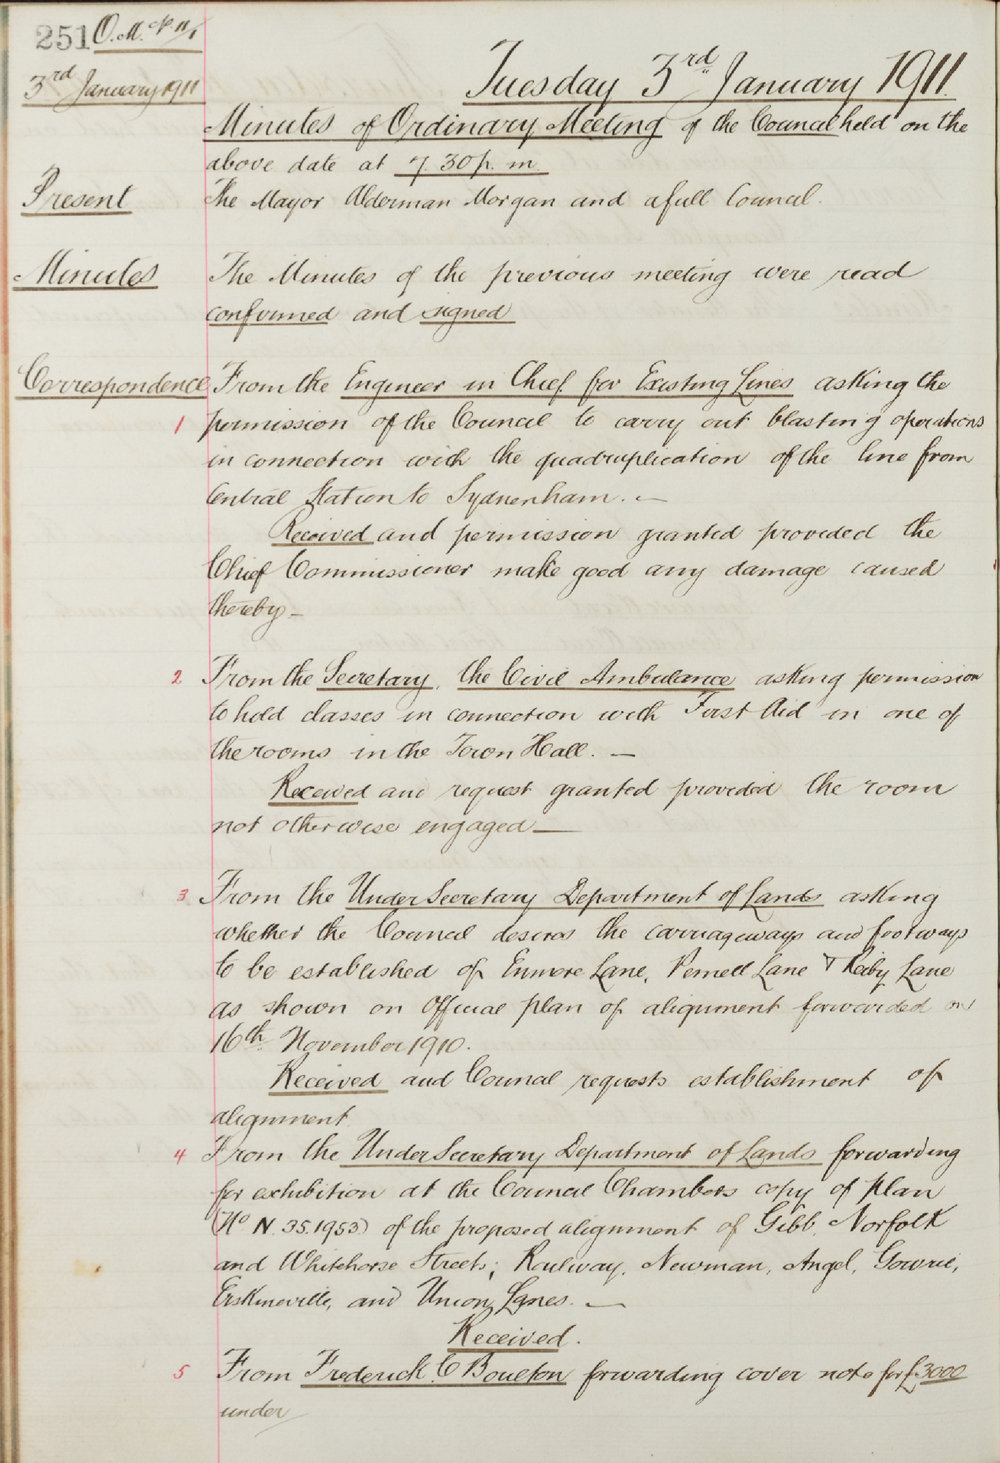 251 O. M. No 11/1
3rd January 1911
Tuesday 3rd January 1911
Minutes of Ordinary Meeting of the Council held on the
above date at 7.30 p.m
Present
The Mayor Alderman Morgan and a full Council.
Minutes
The Minutes of the previous meeting were read
confirmed and signed
Correspondence
From the Engineer in Chief for Existing Lines asking the
1 permission of the Council to carry out blasting operations
in connection with the quadruplication of the line from
Central Station to Sydnenham. —
Received and permission granted provided the
Chief Commissioner make good any damage caused
thereby —
2 From the Secretary, the Civil Ambulance asking permission
to hold classes in connection with First Aid in one of
the rooms in the Town Hall. —
Received and request granted provided the room
not otherwise engaged —
3 From the Under Secretary Department of Lands asking
whether the Council desires the carriageways and footways
to be established of Enmore Lane, Pemell Lane & Reiby Lane
as shown on Official plan of alignment forwarded on
16th November 1910.
Received and Council requests establishment of
alignment
4 From the Under Secretary Department of Lands forwarding
for exhibition at the Council Chambers copy of plan
(No N.35.1953) of the proposed alignment of Gibb, Norfolk
and Whitehorse Streets; Railway, Newman, Angel, Gowrie,
Erskineville, and Union Lanes. —
Received.
5 From Frederick C Boulton forwarding cover note for £3000
under